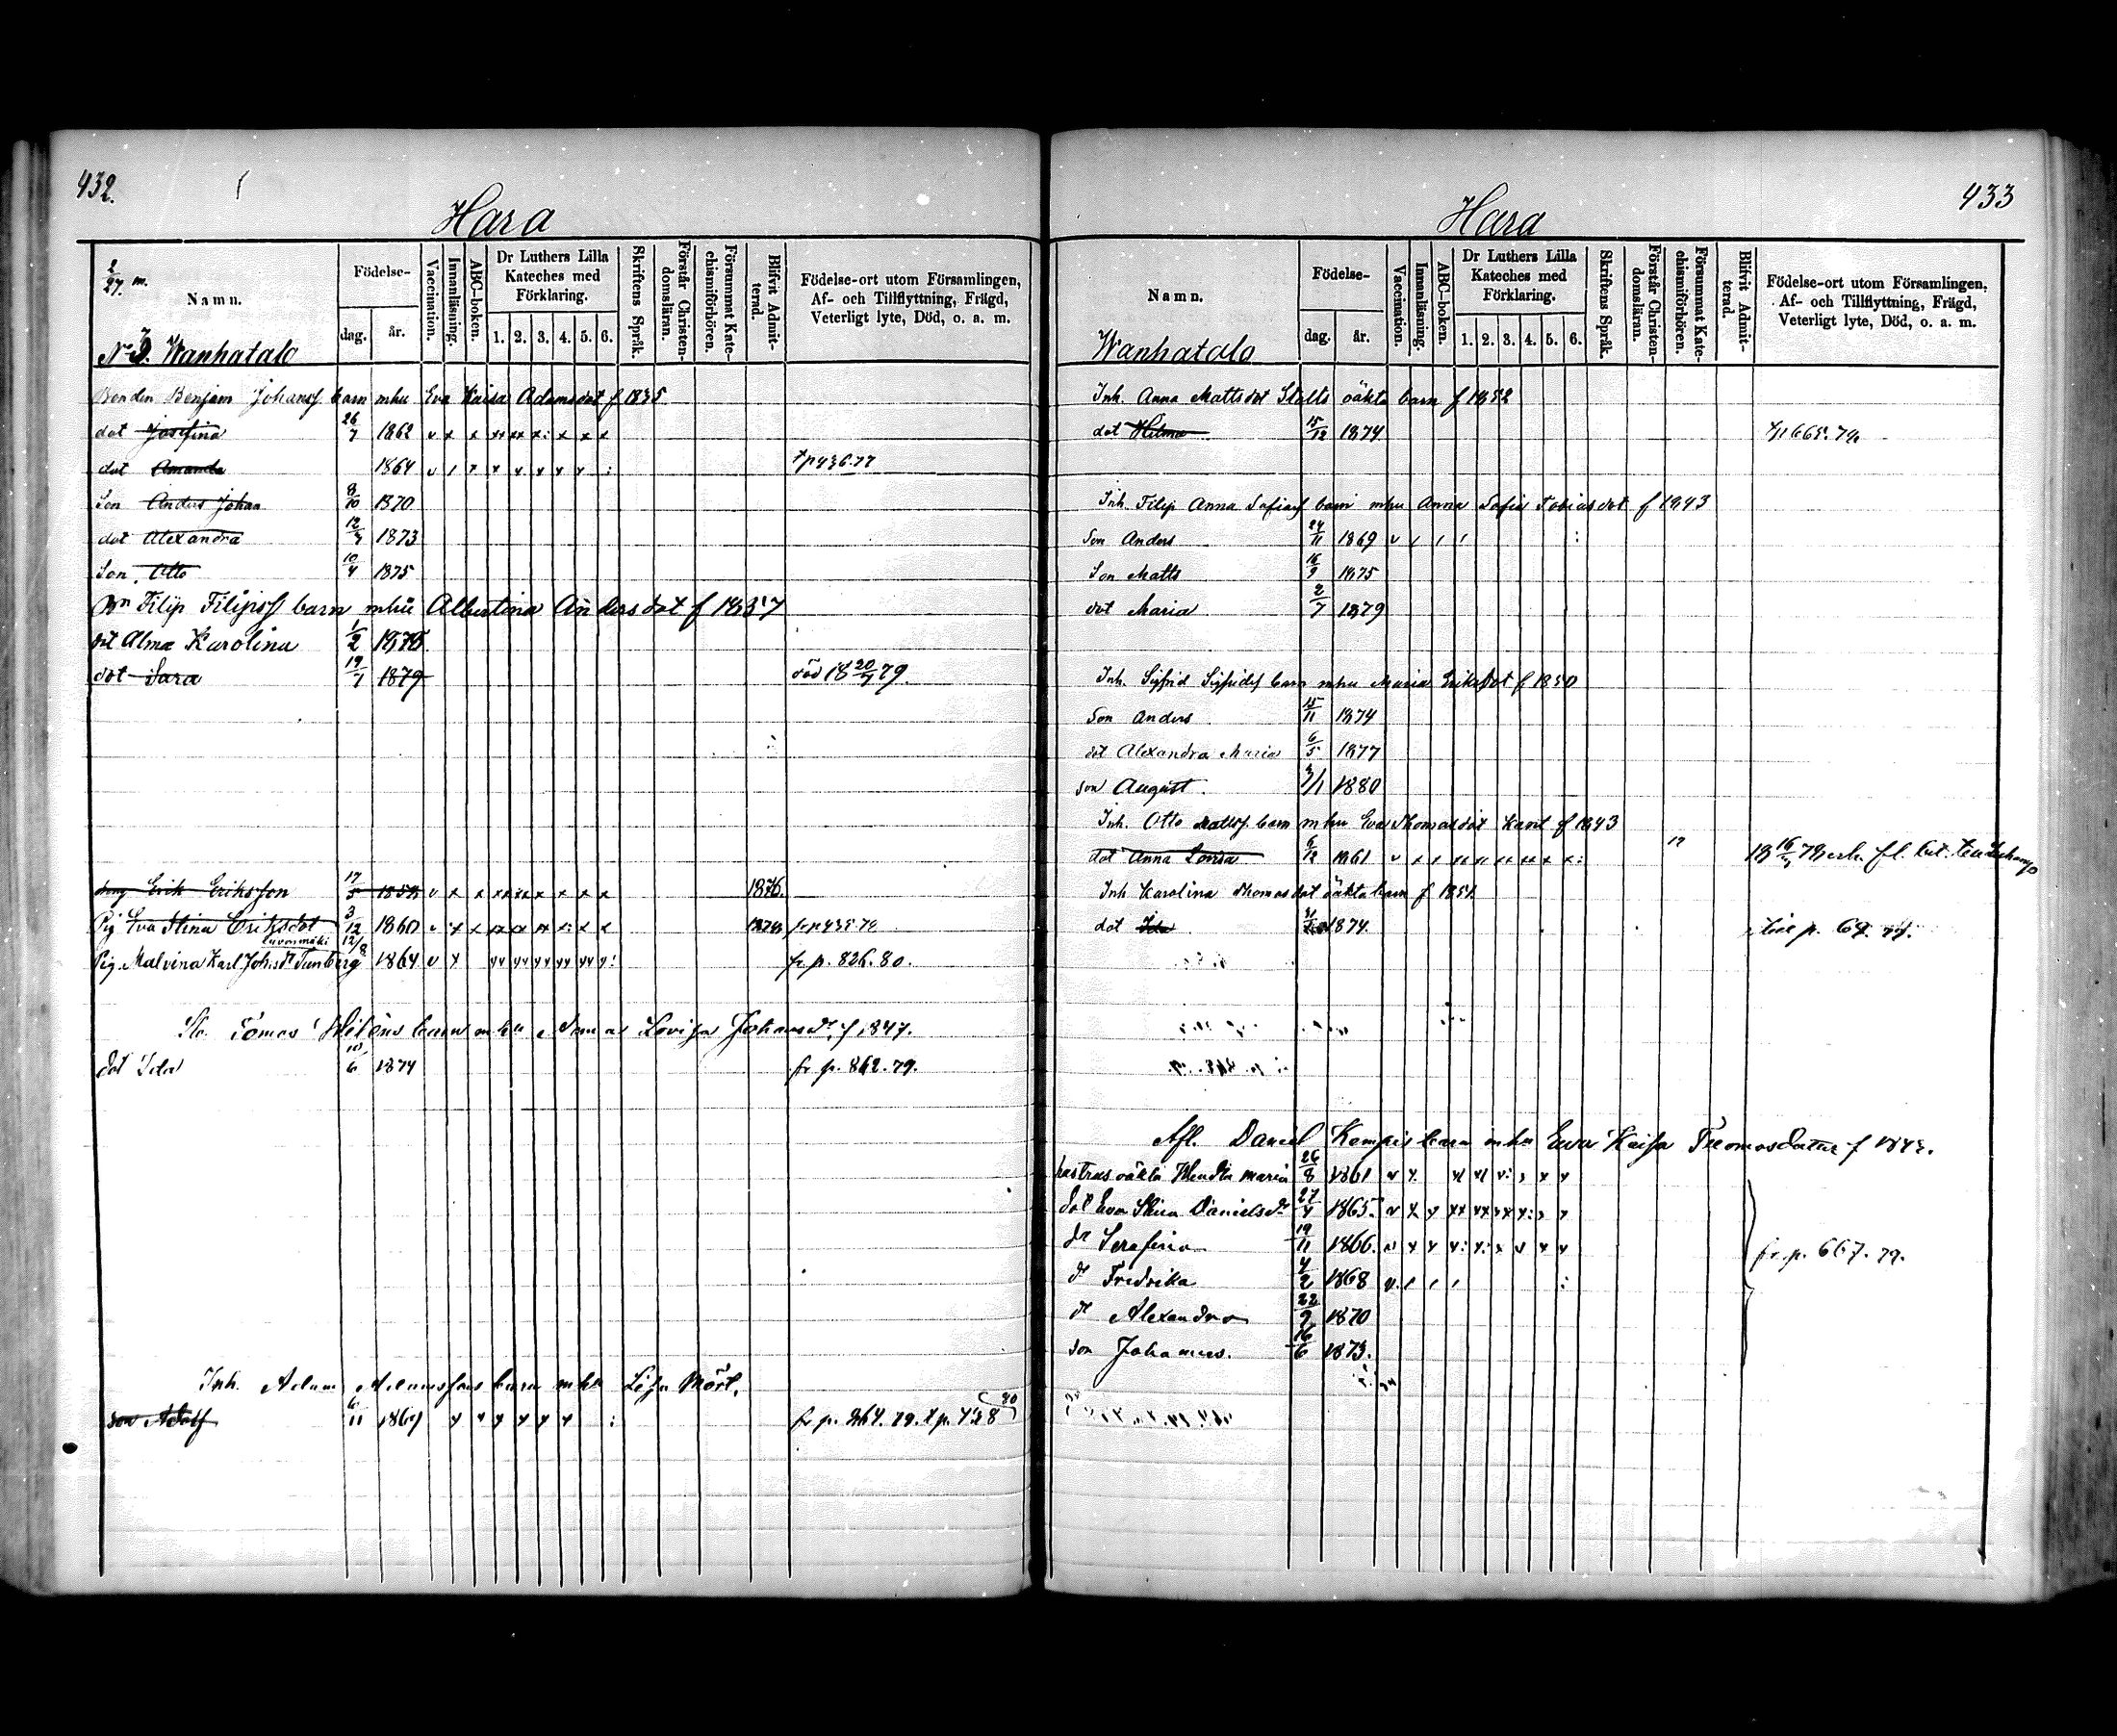 432.
Hara
2/27 m.
Namn.
Födelse-
dag.
år.
Vaccination.
Innanläsning.
ABC-boken.
Dr Luthers Lilla Kateches med Förklaring.
1. 2. 3. 4. 5. 6.
Skriftens Språk.
Förstår Christendomsläran.
Försummat Katechismiförhören.
Blifvit Admitterad.
Födelse-ort utom Församlingen,
Af- och Tillflyttning, Frägd,
Veterligt lyte, Död, o. a. m.
No 3. Wanhatalo
Bonden Benjam Johanss barn mhu Eva Kaisa Adamsdot f 1835
dot Josefina 26/7 1862
dot Amanda 1864 tp 436.77
Son Anders Johan 8/10 1870
dot Alexandra 12/7 1873
Son Otto 10/4 1875
Bn Filip Filipss barn mhu Albertina Andersdot f 1857
dot Alma Karolina 1/2 1878
dot Sara 19/7 1879 död 18 20/7 79.
dreng Erik Eriksson 17/5 1858 1876.
Pig Eva Stina Eriksdot 3/12 1860 1878 fr p 435.78
Pig. Malvina Karl Johsdr Tunberg 12/8 1864 fr p. 826.80.
Tomas barn mhu Lovisa Johansdr, f. 1847.
dot Ida 10/6 1874 fr p. 862.79.
Inh. Adam Adamssons barn mhu Lisa Mört.
son Adolf 6/11 1867 fr p. 264.79. t p. 428 80
433
Hara
Namn.
Födelse-
dag.
år.
Vaccination.
Innanläsning.
ABC-boken.
Dr Luthers Lilla Kateches med Förklaring.
1. 2. 3. 4. 5. 6.
Skriftens Språk.
Förstår Christendomsläran.
Försummat Katechismiförhören.
Blifvit Admitterad.
Födelse-ort utom Församlingen,
Af- och Tillflyttning, Frägd,
Veterligt lyte, Död, o. a. m.
Wanhatalo
Inh. Anna Mattsdot Stalts oäkta barn f 1852
dot Hilma 15/12 1874
Inh. Filip Anna Sofiass barn mhu Anna Sofia Tobiasdot f 1843
Son Anders 24/11 1869
Son Matts 16/9 1875
dot Maria 2/7 1879
Inh. Sigfrid Sigfridss barn mhu Maria Eriksdot f 1850
Son Anders 15/11 1874
dot Alexandra Maria 6/5 1877
son August. 1880
Inh. Otto Mattss. barn mhu Eva Thomasdot f 1843
dot Anna Lovisa 6/12 1861
Inh Karolina Thomasdot oäkta barn f 1851.
dot Ida 1874
Afl. Daniel Kempis barn mhu Ewa Kaisa Thomasdatur f
hustrus oäkta Maria 26/8 1861
dot Eva Stina Danielsdr 27/4 1865
dr Serafina 19/11 1866
dr Fredrika 4/2 1868
dr Alexandra 22/9 1870
son Johannes. 16/6 1873.
fr p. 667.79.